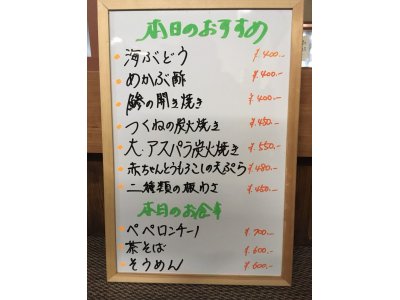 本日のおすすめ
海ぶどう ¥400.-
めかぶ酢 ¥400.-
鯵の開き焼き ¥400.-
つくねの炭火焼き ¥450.-
大・アスパラ炭火焼き ¥550.-
赤ちゃんとうもろこしの天ぷら ¥480.-
二種類の板わさ ¥450.-
本日のお食事
ペペロンチーノ ¥700.-
茶そば ¥600.-
そうめん ¥600.-